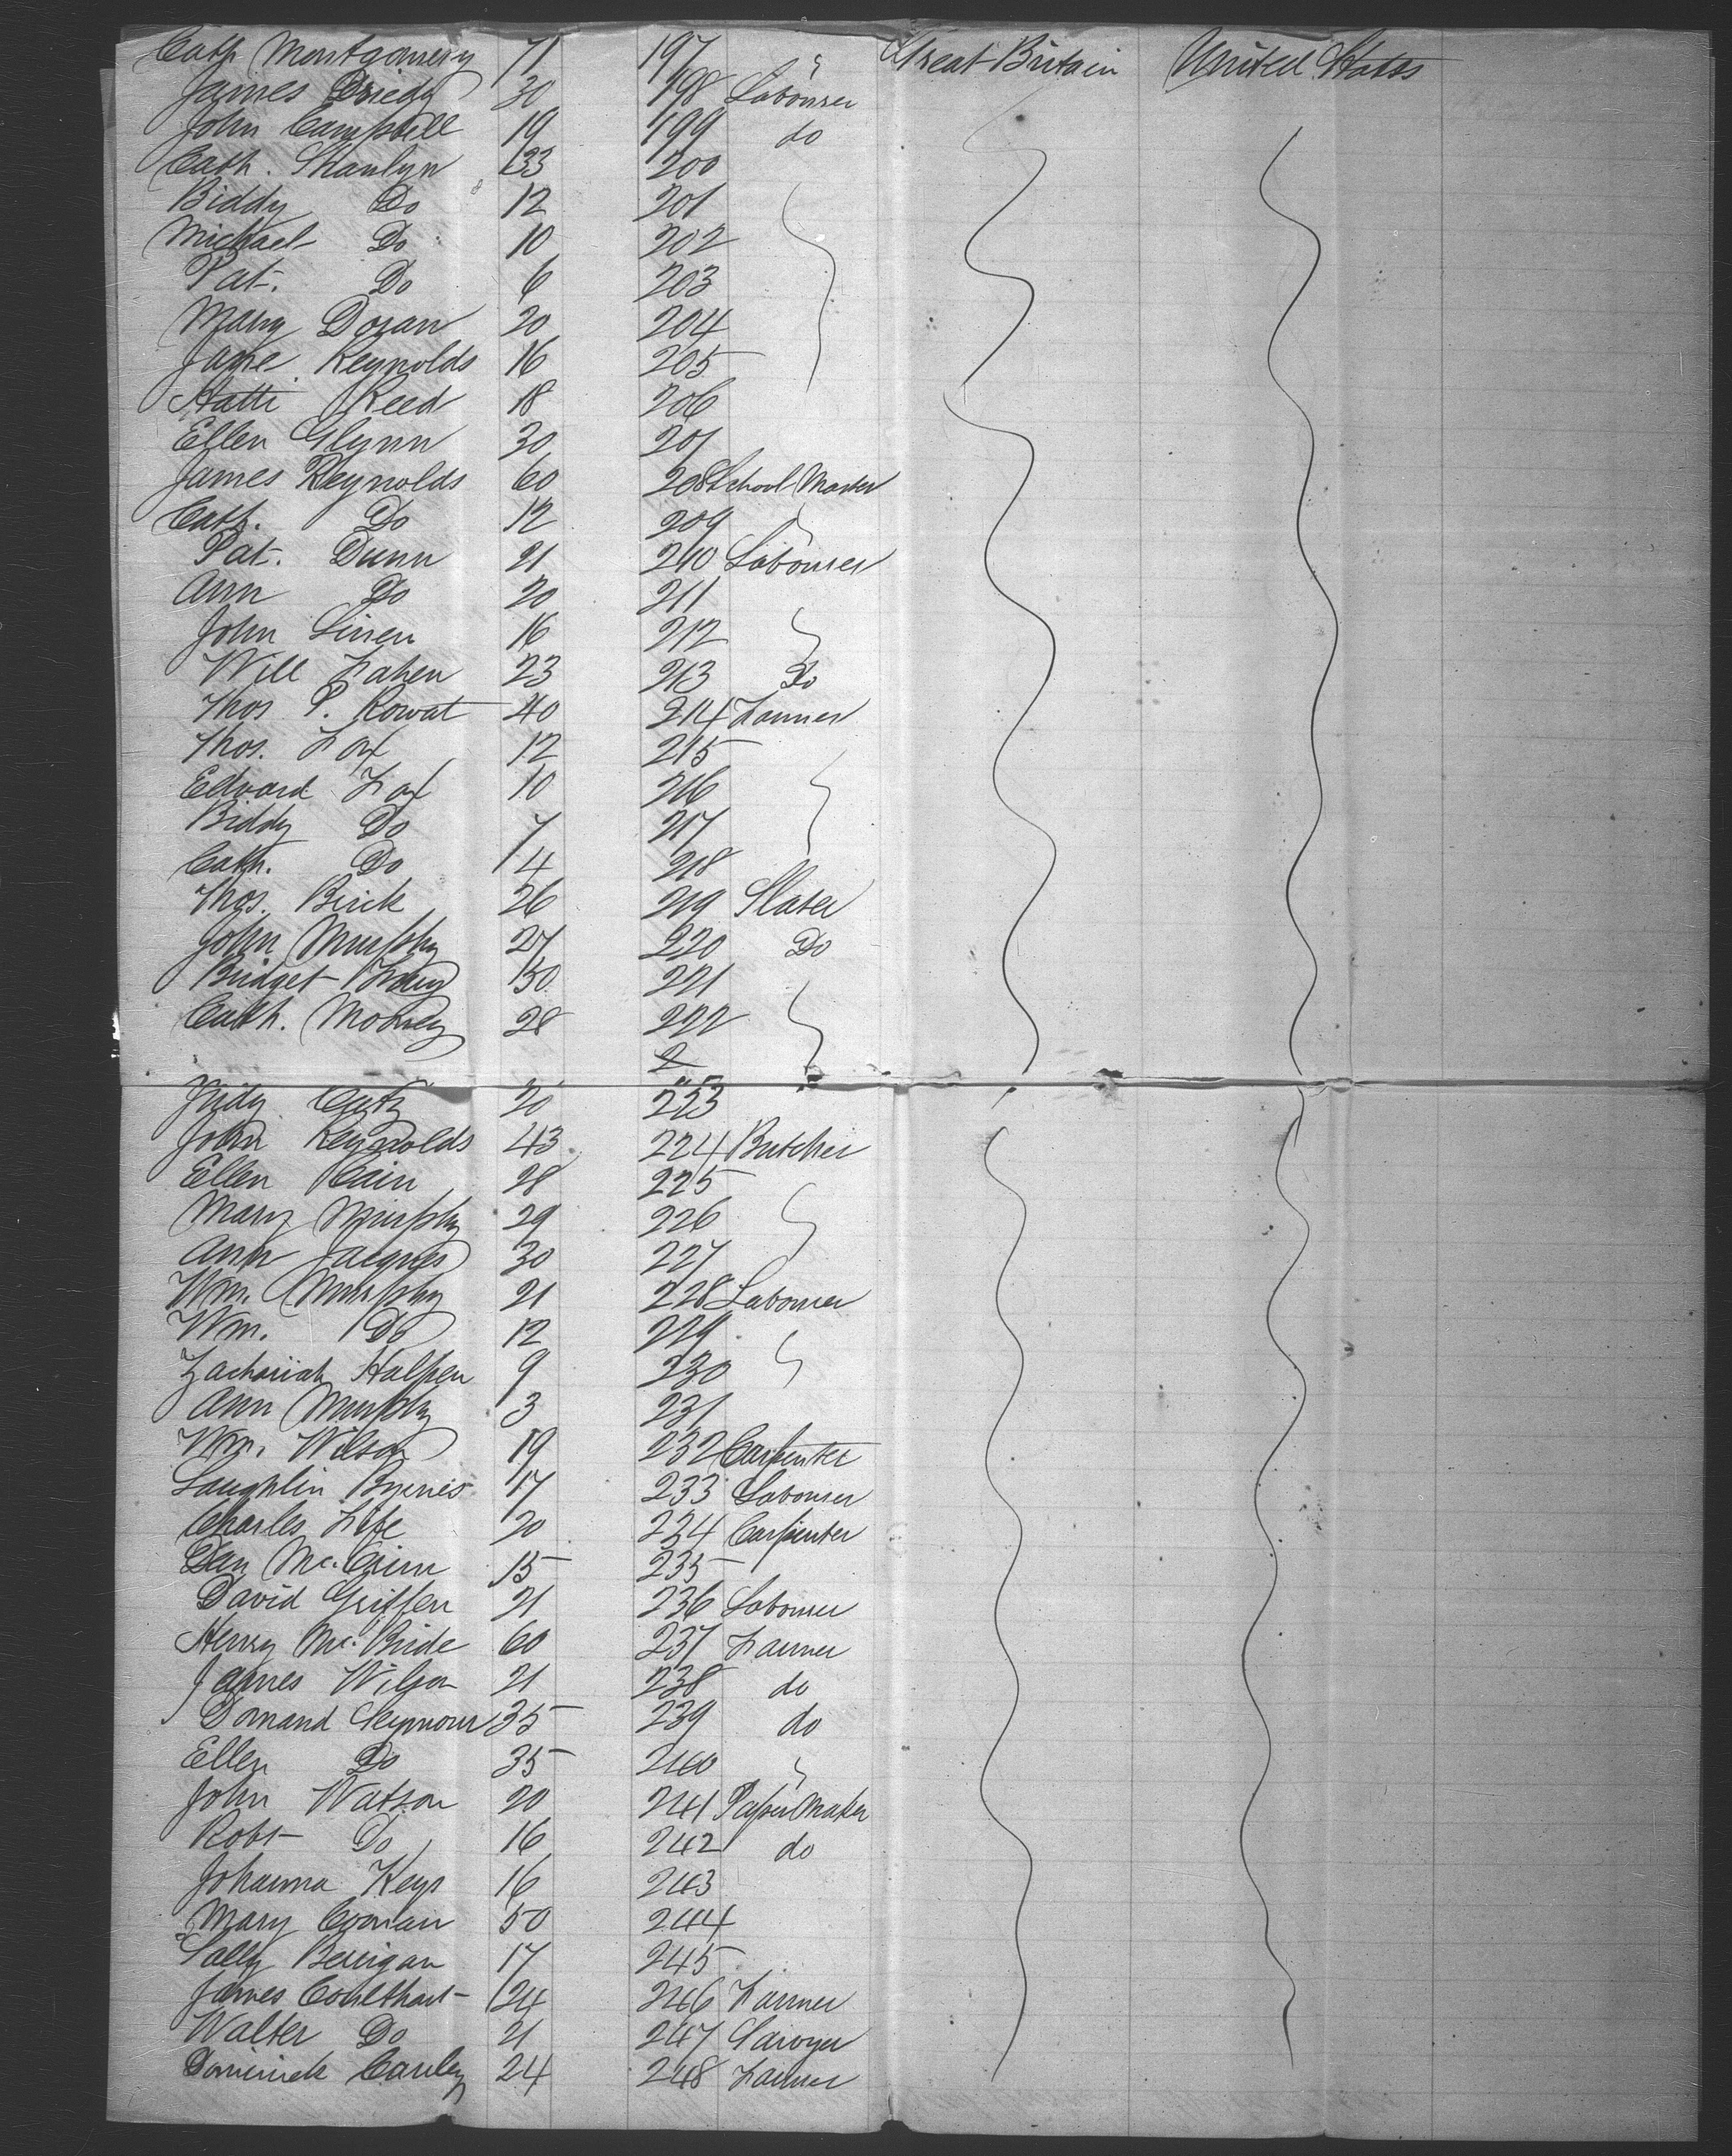 Cath Montgomery 71 197 " Great Britain United States
James 30 198 Labourer
John Campbell 19 199 do
Cath. 33 200
Biddy Do 12 201
Michael Do 10 202
Pat. Do 6 203
Mary Doran 20 204
Jane Reynolds 16 205
Hatti Reed 18 206
Ellen Glynn 30 207
James Reynolds 60 208 School Master
Cath. Do 12 209
Pat. Dunn 21 210 Labourer
Ann Do 20 211
John Linen 16 212
Will Fahen 23 213 Do
Thos P. Rowat 40 214 Farmer
Thos. Fox 12 215
Edward Fox 10 216
Biddy Do 7 217
Cath. Do 4 218
Thos. Birck 26 219 Slater
John Murphy 27 220 Do
Bridget 50 221
Cath. 28 222
2
Judy 20 223
John Reynolds 43 224 Butcher
Ellen Cain 28 225
Mary Murphy 29 226
Ann Jacques 30 227
Wm. Murphy 21 228 Labourer
Wm. Do 12 229
Zachariah Halpen 9 230
Ann Murphy 3 231
Wm. Wilson 19 232 Carpenter
Laughlin Byrnes 17 233 Labourer
Charles Fife 20 234 Carpenter
Dan 15 235
David Griffen 21 236 Labourer
Henry Mc.Bride 60 237 Farmer
James Wilson 21 238 do
Seymour 35 239 do
Ellen Do 35 240
John Watson 20 241 Paper Maker
Robt Do 16 242 do
Johanna Keys 16 243
Mary 50 244
Sally Berrigan 17 245
James Coulthart 24 246 Farmer
Walter Do 21 247 Sawyer
Dominick Cauley 24 248 Farmer